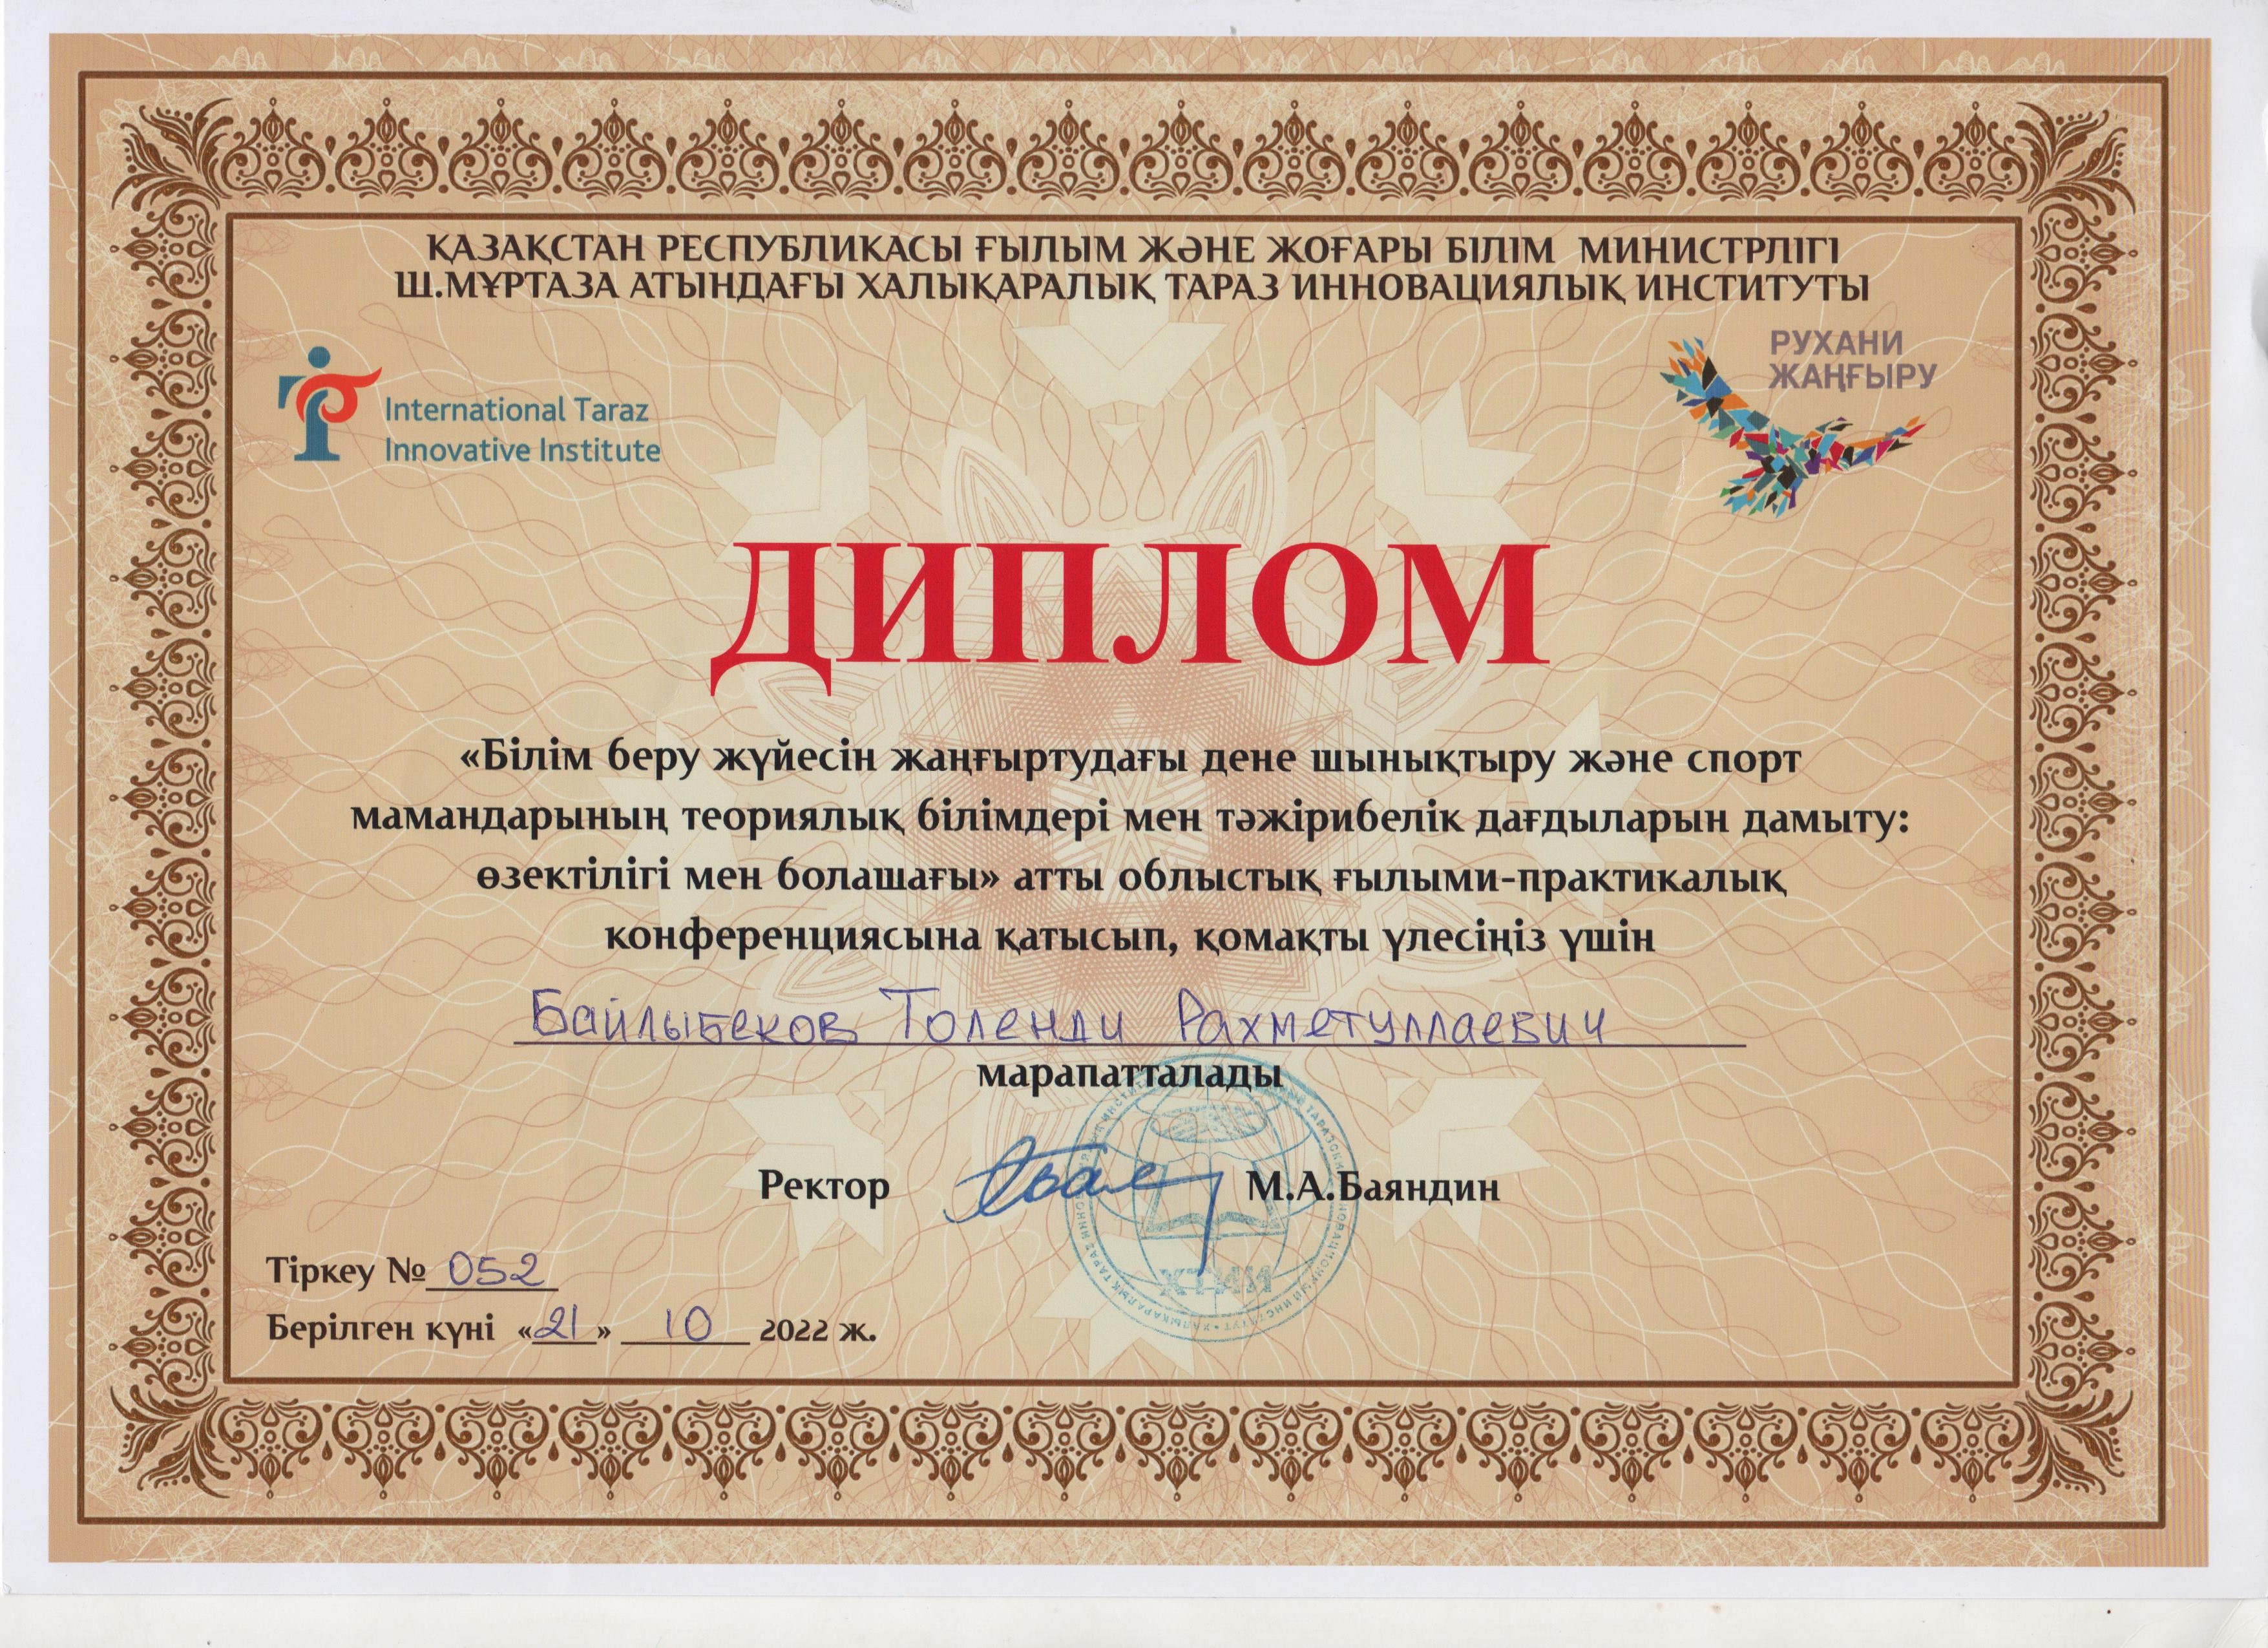 ҚАЗАҚСТАН РЕСПУБЛИКАСЫ ҒЫЛЫМ ЖӘНЕ ЖОҒАРЫ БІЛІМ МИНИСТРЛІГІ
Ш.МҰРТАЗА АТЫНДАҒЫ ХАЛЫҚАРАЛЫҚ ТАРАЗ ИННОВАЦИЯЛЫҚ ИНСТИТУТЫ
International Taraz
Innovative Institute
РУХАНИ
ЖАҢҒЫРУ
ДИПЛОМ
«Білім беру жүйесін жаңғыртудағы дене шынықтыру және спорт
мамандарының теориялық білімдері мен тәжірибелік дағдыларын дамыту:
өзектілігі мен болашағы» атты облыстық ғылыми-практикалық
конференциясына қатысып, қомақты үлесіңіз үшін
Байлыбеков Толенди Рахметуллаевич
марапатталады
Ректор М.А.Баяндин
ХТИИ
Тіркеу № 052
Берілген күні «21» 10 2022 ж.